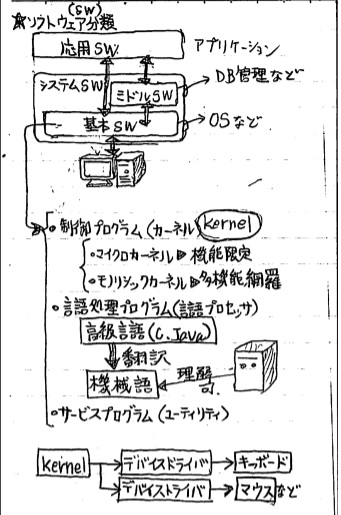 (SW)
☆ソフトウェア分類
応用SW
アプリケーション
システムSW
ミドルSW
DB管理など
基本SW
OSなど
・制御プログラム(カーネル) kernel
・マイクロカーネル▷機能限定
・モノリシックカーネル▷多機能網羅
・言語処理プログラム(言語プロセッサ)
高級言語(C.Java)
翻訳
機械語
理解可.
・サービスプログラム(ユーティリティ)
kernel
デバイスドライバ
キーボード
デバイスドライバ
マウスなど